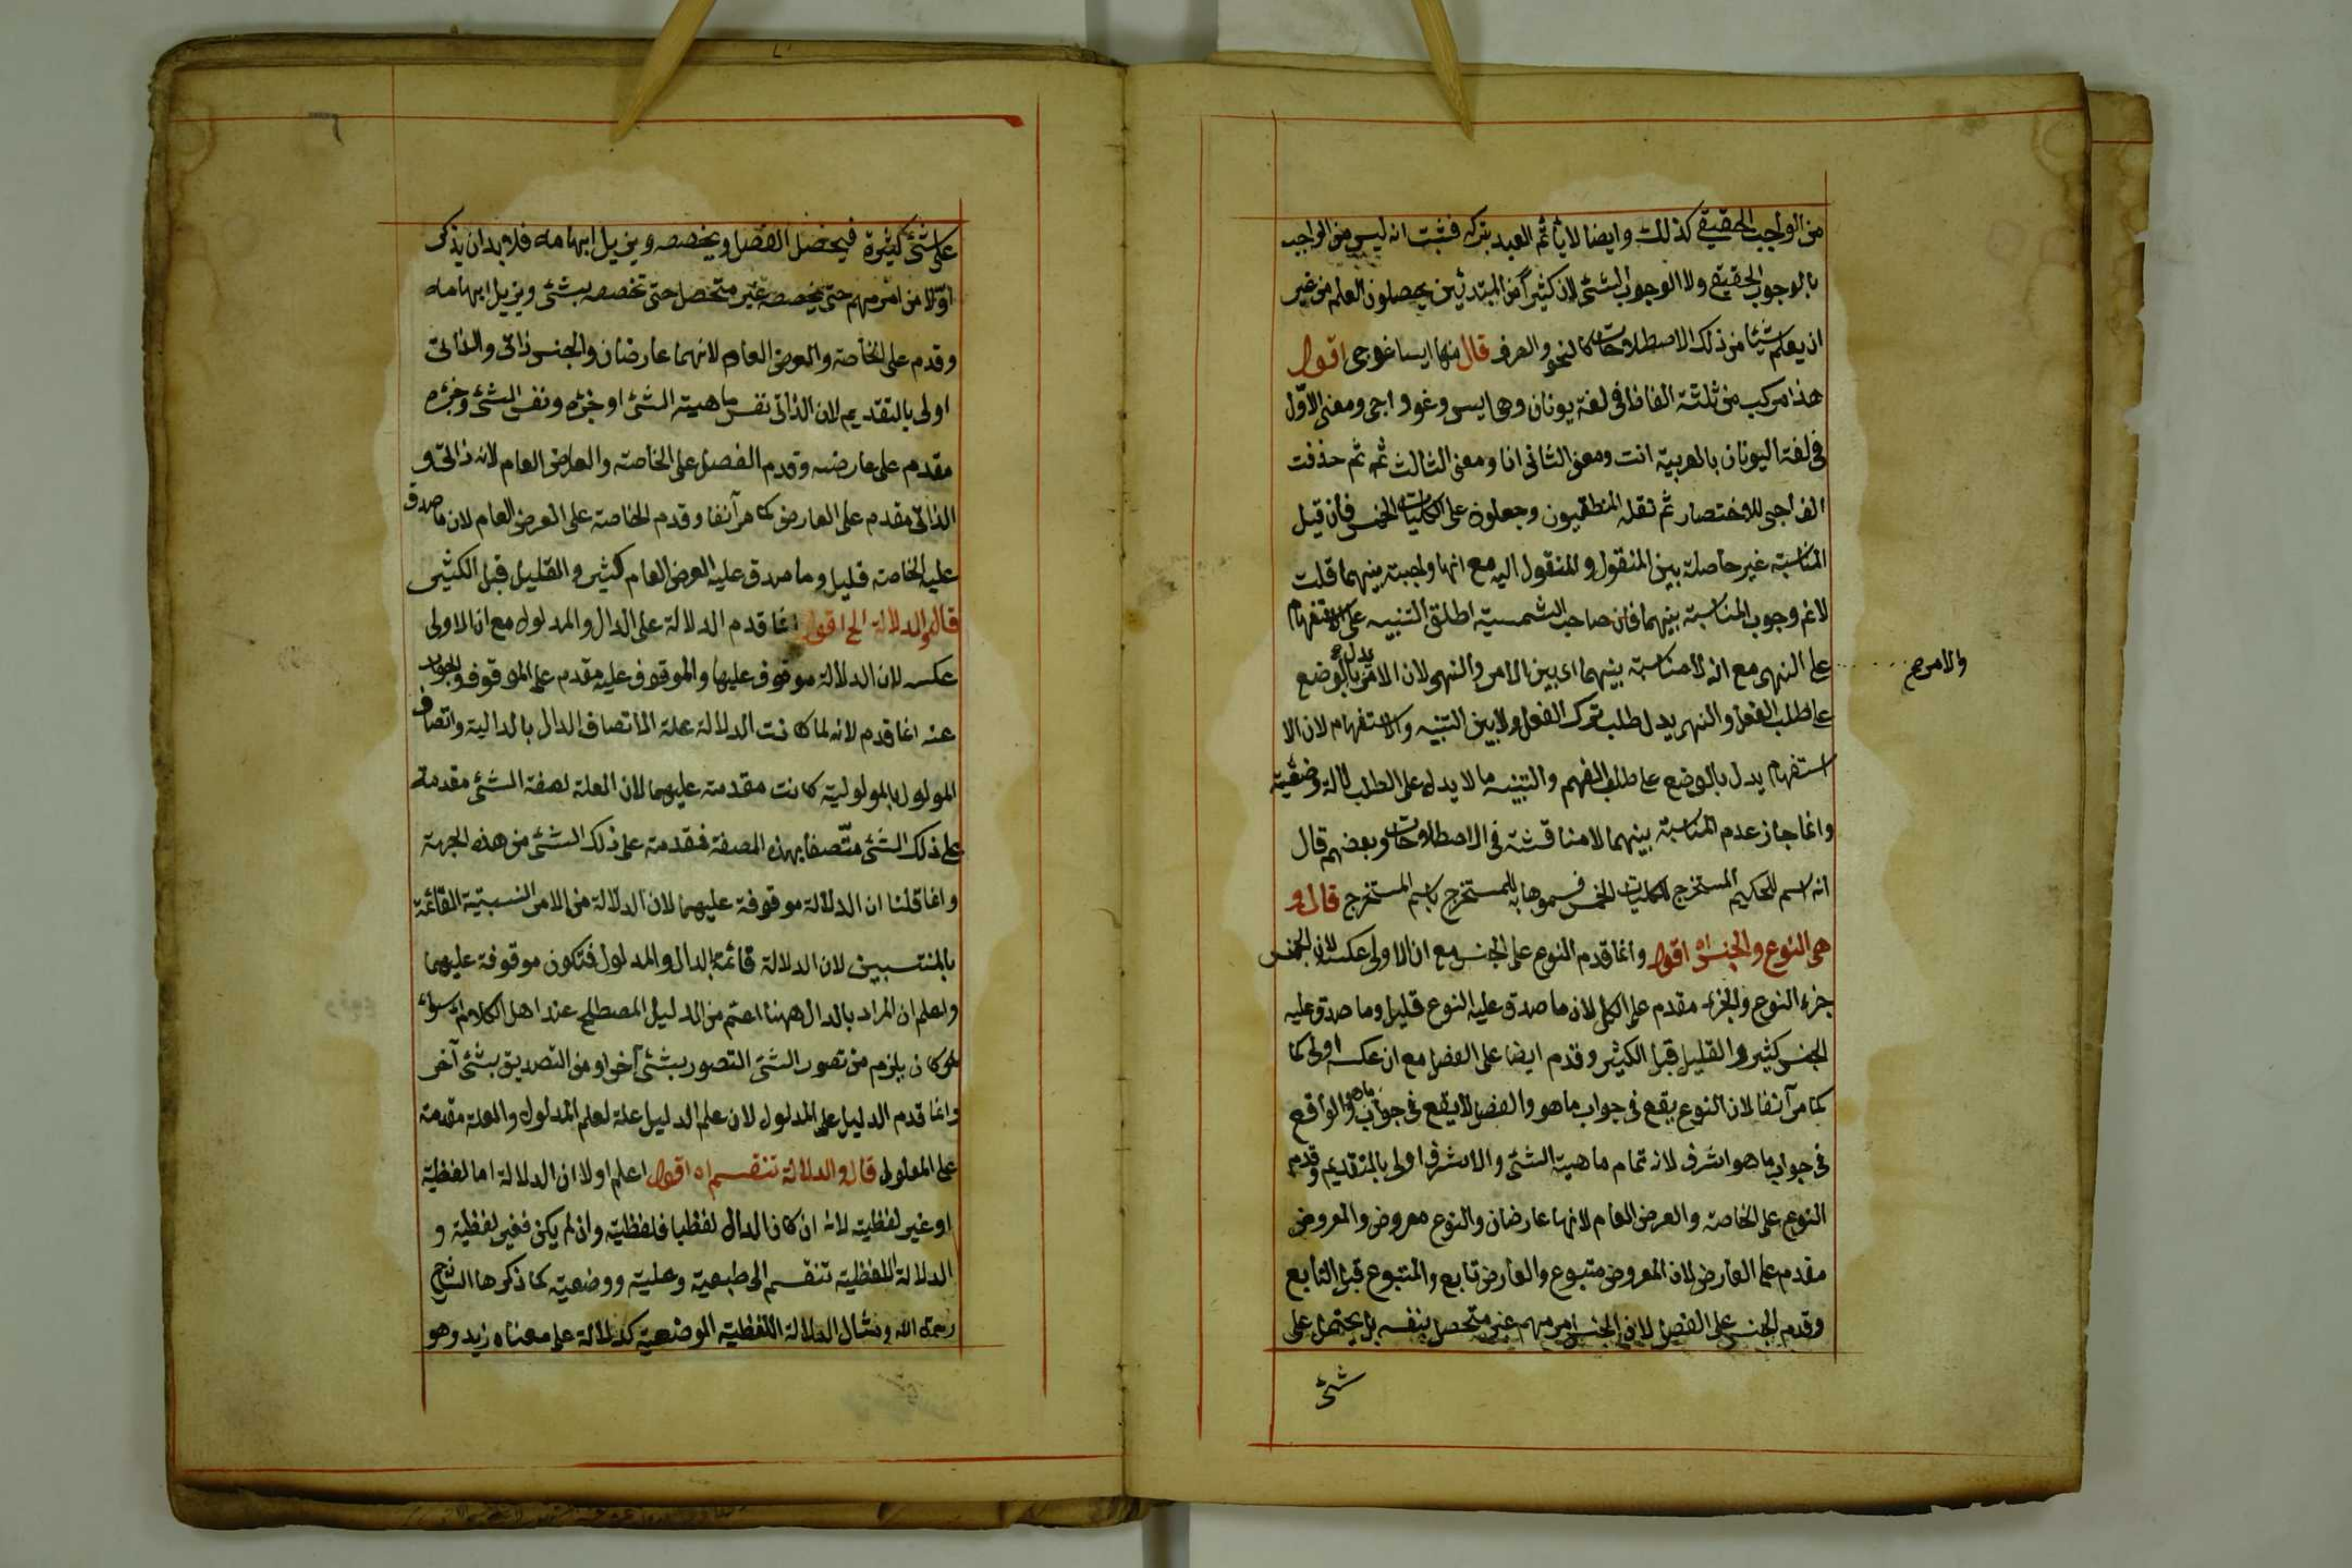 من الواجب الحقيقي كذلك وايضا لا يأثم العبد بتركه فثبت انه ليس من الواجب
بالوجوب الحقيقي ولا الوجوب الشئ لان كثيرا من المبتدئين يحصلون العلم من غير
ان يعلم شيئا من ذلك الاصطلاحات كالنحو والصرف قال منها ايساغوجى اقول
هذا مركب من ثلثة الفاظ في لغة يونان وهى ايس وغو واجى ومعنى الاوّل
في لغة اليونان بالعربية انت ومعنى الثانى انا ومعنى الثالث ثمه ثم حذفت
الف اجى للاختصار ثم نقله المنطقيون وجعلوه على الكليات الخمس فان قيل
المناسبة غير حاصلة بين المنقول والمنقول اليه مع انها واجبة بينهما قلت
لا نم وجوب المناسبة بينهما فان صاحب الشمسية اطلق التنبيه على الاستفهام
والامر صح
على النهى مع انه لا مناسبة بينهما اى بين الامر والنهى لان الامر يدل بالوضع
على طلب الفعل والنهى يدل طلب ترك الفعل ولا بين التنبيه والاستفهام لان الا
استفهام يدل بالوضع على طلب الفهم والتنبيه ما لا يدل على الطلب دلالة وضعية
وانما جاز عدم المناسبة بينهما لا مناقشة في الاصطلاحات وبعضهم قال
انه اسم للحكيم المستخرج للكليات الخمس فسموها به للمستخرج باسم المستخرج قال و
هى النوع والجنس اه اقول وانما قدم النوع على الجنس مع ان الاولى عكسه لان الجنس
جزء النوع والجزء مقدم على الكل لان ما صدق عليه النوع قليل وما صدق عليه
الجنس كثير والقليل قبل الكثير وقدم ايضا على الفصل مع ان عكسه اولى كما
كما مر آنفا لان النوع يقع في جواب ما هو والفصل لا يقع في جواب ما هو والواقع
في جواب ما هو اشرف لانه تمام ماهية الشئ والاشرف اولى بالتقديم وقدم
النوع على الخاصة والعرض العام لانها عارضان والنوع معروض والمعروض
مقدم على العارض لان المعروض متبوع والعارض تابع والمتبوع قبل التابع
وقدم الجنس على الفصل لان الجنس امر مبهم غير متحصل بنفسه بل يحتمل على
شئ
على شئ كثيرة فيحصل الفصل ويخصصه ويزيل ابهامه فلا بد ان يذكر
اوّلا من امر مبهم حتى يخصصه غير متحصل حتى تخصصه بشئ ويزيل ابهامه
وقدم على الخاصة والعرض العام لانهما عارضان والجنس ذاتى والذاتى
اولى بالتقديم لان الذاتى نفس ماهية الشئ او جزءه ونفس الشئ وجزءه
مقدم على عارضه وقدم الفصل على الخاصة والعارض العام لانه ذاتى و
الذاتى مقدم على العارض كما مر آنفا وقدم الخاصة على العرض العام لان ما صدق
عليه الخاصة قليل وما صدق عليه العرض العام كثير والقليل قبل الكثير
قال والدلالة الخ اقول انما قدم الدلالة على الدال والمدلول مع ان الاولى
عكسه لان الدلالة موقوف عليها والموقوف عليه مقدم على الموقوف والجواب
عنه انما قدم لانه لما كانت الدلالة علة لاتصاف الدال بالدالية واتصاف
المولول بالمولولية كانت مقدمة عليهما لان العلة لصفة الشئ مقدمة
على ذلك الشئ متّصفا بهذه الصفة فقدمة على ذلك الشئ من هذه الجهة
وانما قلنا ان الدلالة موقوفة عليهما لان الدلالة من الامر النسبتية القائمة
بالمنتسبين لان الدلالة قائمة بالدال والمدلول فتكون موقوفة عليهما
واعلم ان المراد بالدال ههنا اعم من الدليل المصطلح عند اهل الكلام اه سواء
هو كان يلزم من تصور الشئ التصور بشئ آخر او من التصديق بشئ آخر
وانما قدم الدليل على المدلول لان علم الدليل علة لعلم المدلول والعلة مقدمة
على المعلول قال والدلالة تنقسم اه اقول اعلم اولا ان الدلالة اما لفظية
او غير لفظية لانه ان كان الدال لفظيا فلفظية وان لم يكن فغير لفظية و
الدلالة اللفظية تنقسم الى طبعية وعلية ووضعية كما ذكرها الشارح
رحمة الله ومثال الدلالة اللفظية الموضعية كدلالة على معناه زيد وهو